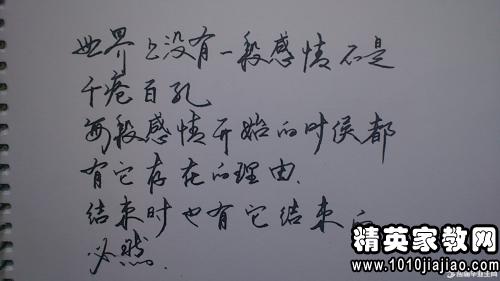 世界上没有一段感情不是
千疮百孔
每段感情开始的时侯都
有它存在的理由.
结束时也有它结束的
必然.
精英家教网
www.1010jiajiao.com